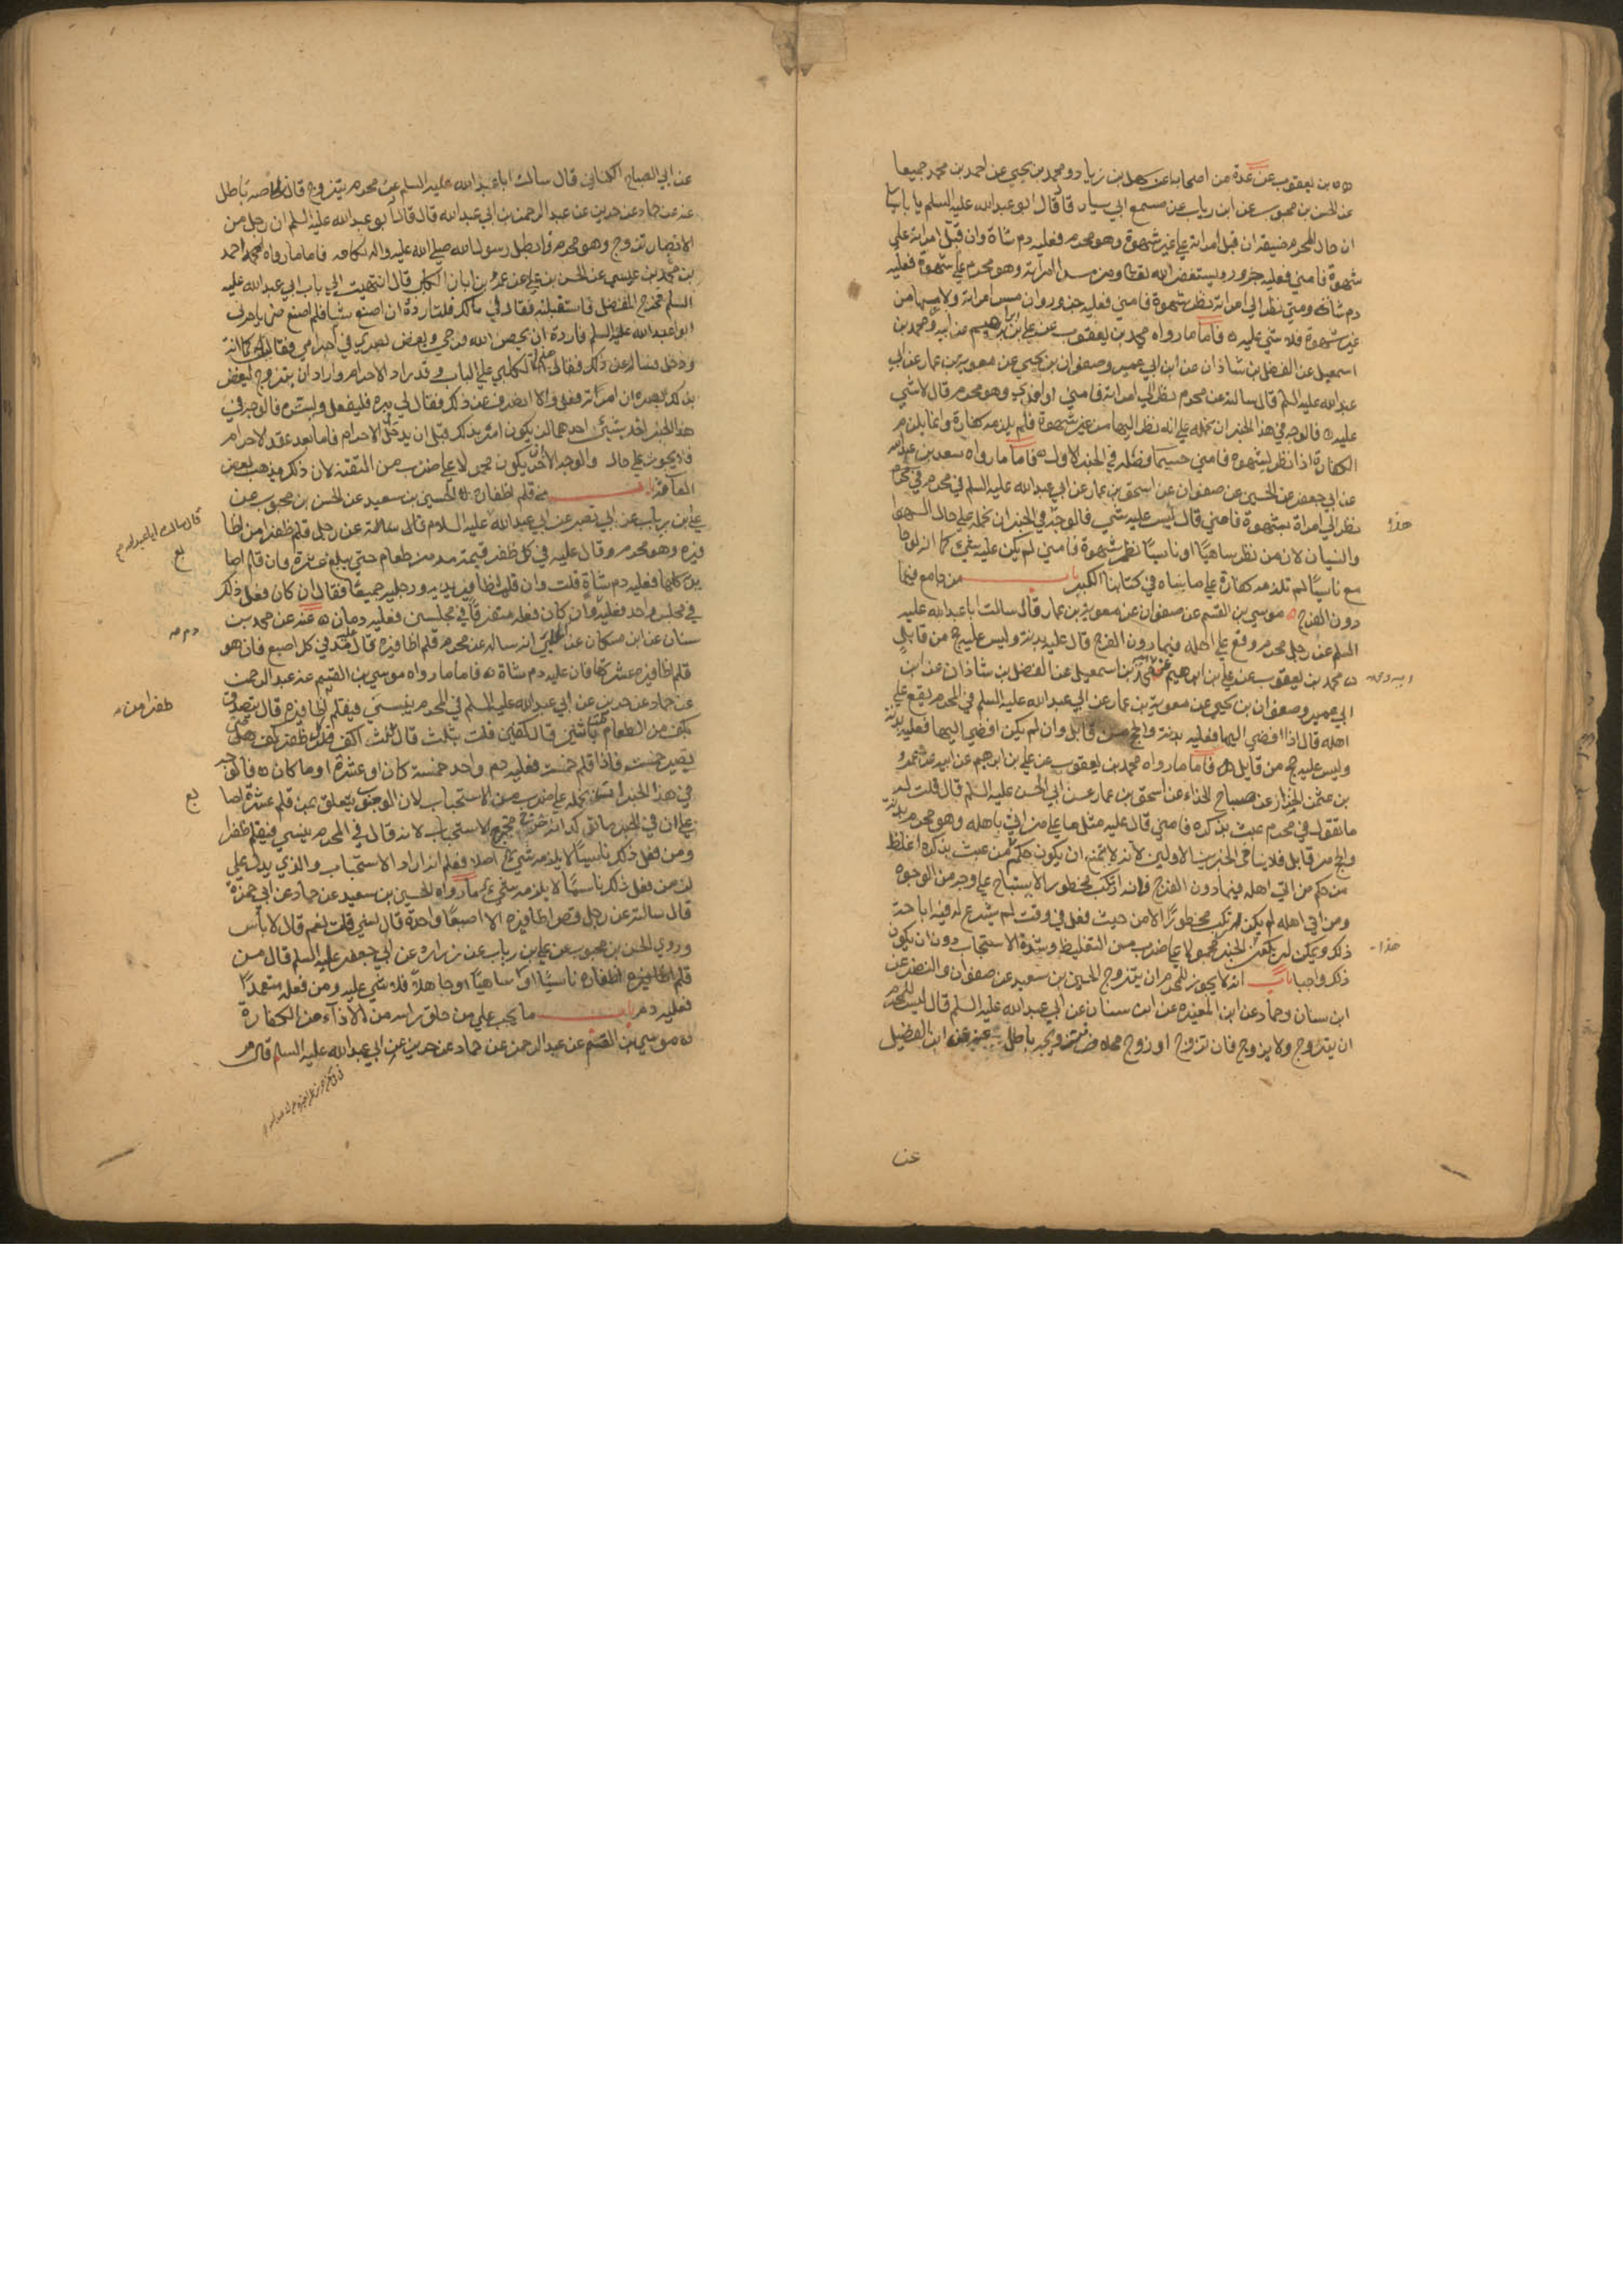 محمد بن يعقوب عن عدة من اصحابنا عن سهل بن زياد ومحمد بن يحيي عن احمد بن محمد جميعا
عن الحسن بن محبوب عن ابن رياب عن مسمع ابي سيار قال قال ابو عبد الله عليه السلم يا با سيار
ان حال المحرم ضيقة ان قبل امراته علي غير شهوة وهو محرم فعليه دم شاة وان قبل امراته علي
شهوة فامني فعليه جزور ويستغفر الله تعالي ومن مس امراته وهو محرم علي شهوة فعليه
دم شاة ومن نظر الي امراته نظر شهوة فامني فعليه جزور وان مس امراته ولامسها من
غير شهوة فلا شي عليه فاما ما رواه محمد بن يعقوب عن علي بن ابرهيم عن ابيه ومحمد بن
اسمعيل عن الفضل بن شاذان عن ابن ابي عمير وصفوان بن يحيي عن معوية بن عمار عن ابي
عبد الله عليه السلم قال سالته عن محرم نظر الي امراته فامني او امذي وهو محرم قال لا شي
عليه فالوجه في هذا الخبر ان نحمله علي انه نظر اليها من غير شهوة فلم يلزمه كفارة وانما يلزم
الكفارة اذا نظر بشهوه فامني حسبما فصله في الخبر الاول فاما ما رواه سعد بن عبد الله
عن ابي جعفر عن الحسين عن صفوان عن اسحق بن عمار عن ابي عبد الله عليه السلم في محرم
نظر الي امراة بشهوة فامني قال ليس عليه شي فالوجه في الخبر ان نحمله علي حال السهو
والنسيان لان من نظر ساهيا او ناسيا نظر شهوة فامني لم يكن عليه شي كما انه لو جا
مع ناسيا لم تلزمه كفارة علي ما بيناه في كتابنا الكبير باب من جامع فيما
دون الفرج موسي بن القسم عن صفوان عن معوية بن عمار قال سالت ابا عبد الله عليه
السلم عن رجل محرم وقع علي اهله فيما دون الفرج قال عليه بدنة وليس عليه حج من قابل
محمد بن يعقوب عن علي بن ابرهيم عن ابيه بن اسمعيل عن الفضل بن شاذان عن ابن
ابي عمير وصفوان بن يحيي عن معوية بن عمار عن ابي عبد الله عليه السلم في المحرم يقع علي
اهله قال اذا افضي اليها فعليه بدنة والحج من قابل وان لم يكن افضي اليها فعليه بدنة
وليس عليه حج من قابل فاما ما رواه محمد بن يعقوب عن علي بن ابرهيم عن ابيه عن عمرو
بن عثمن الخزاز عن صباح الحذاء عن اسحق بن عمار عن ابي الحسن عليه السلم قال قلت له
ما تقول في محرم عبث بذكره فامني قال عليه مثل ما علي من اتي اهله وهو محرم بدنة
والحج من قابل فلا ينافي الخبرين الاولين لانه لا يمتنع ان يكون حكم من عبث بذكره اغلظ
من حكم من اتي اهله فيما دون الفرج فانه ارتكب محظورا لا يستباح علي وجه من الوجوه
ومن اتي اهله لم يكن ارتكب محظورا الا من حيث فعل في وقت لم يشرع له فيه اباحة
ذلك ويمكن ان يكون الخبر محمولا علي ضرب من التغليظ وشدة الاستحباب دون ان يكون
ذلك واجبا باب انه لا يجوز للمحرم ان يتزوج الحسين بن سعيد عن صفوان والنضر عن
ابن سنان وحماد عن ابن المغيره عن ابن سنان عن ابي عبد الله عليه السلم قال ليس للمحرم
ان يتزوج ولا يزوج فان تزوج او زوج محلا فتزويجه باطل عنه عن ابن الفضيل
هذا
هذا
عن
عن ابي الصباح الكناني قال سالت ابا عبد الله عليه السلم عن محرم يتزوج قال نكاحه باطل
عنه عن حماد عن حريز عن عبد الرحمن بن ابي عبد الله قال قال ابو عبد الله عليه السلم ان رجل من
الانصار تزوج وهو محرم فابطل رسول الله صلي الله عليه واله نكاحه فاما ما رواه احمد
بن محمد بن عيسي عن الحسن بن علي عن عمر بن ابان الكلبي قال انتهيت الي باب ابي عبد الله عليه
السلم فخرج المفضل فاستقبلته فقال لي مالك قلت اردت ان اصنع شيا فلم اصنع حتي يامرني
ابو عبد الله عليه السلم فاردت ان يحصن الله فرجي ويغض بصري في احرامي فقال كما انت
ودخل فساله عن ذلك فقال هذا الكلبي علي الباب وقد اراد الاحرام واراد ان يتزوج ليغض
بذلك بصره ان امرته فعل والا انصرف عن ذلك فقال لي مره فليفعل وليستتر فالوجه في
هذا الخبر احد شيئين احدهما ان يكون امره بذلك قبل ان يدخل الاحرام فاما بعد عقد الاحرام
فلا يجوز علي حال والوجه الاخر ان يكون محمولا علي ضرب من التقية لان ذلك مذهب بعض
العامة باب من قلم اظفاره الحسين بن سعيد عن الحسن بن محبوب عن
علي بن رياب عن ابي بصير عن ابي عبد الله عليه السلام قال سالته عن رجل قلم ظفرا من اظا
فيره وهو محرم قال عليه في كل ظفر قيمة مد من طعام حتي يبلغ عشرة فان قلم اصا
بع يديه كلها فعليه دم شاة قلت وان قلم اظافير يديه ورجليه جميعا فقال ان كان فعل ذلك
في مجلس واحد فعليه دم وان كان فعله متفرقا في مجلسين فعليه دمان عنه عن محمد بن
سنان عن ابن مسكان عن الحلبي انه ساله عن محرم قلم اظافيره قال عليه مد في كل اصبع فان هو
قلم اظافيره عشرتها فان عليه دم شاة فاما ما رواه موسي بن القسم عن عبد الرحمن
عن حماد عن حريز عن ابي عبد الله عليه السلم في المحرم ينسي فيقلم ظفرا من اظافيره قال يتصدق
بكف من الطعام قلت فاثنين قال كفين قلت فثلث قال ثلث اكف كل ظفر كف حتي
يصير خمسة فاذا قلم خمسة فعليه دم واحد خمسة كان او عشرة او ما كان فالوجه
في هذا الخبر ان نحمله علي ضرب من الاستحباب لان الوجوب يتعلق بمن قلم عشرة اصا
بع علي ان في الخبر ما يؤكد انه خرج مخرج الاستحباب لانه قال في المحرم ينسي فيقلم ظفرا
ومن فعل ذلك ناسيا لا يلزمه شي اصلا فعلم انه اراد الاستحباب والذي يدل علي
ان من فعل ذلك ناسيا لا يلزمه شي ما رواه الحسين بن سعيد عن حماد عن ابي حمزة
قال سالته عن رجل قص اظافيره الا اصبعا واحدة قال نسي قلت نعم قال لا باس
وروي الحسن بن محبوب عن علي بن رياب عن زراره عن ابي جعفر عليه السلم قال من
قلم اظافيره ناسيا او ساهيا او جاهلا فلا شي عليه ومن فعله متعمدا
فعليه دم باب ما يجب علي من حلق راسه من الاذاء من الكفارة
موسي بن القسم عن عبد الرحمن عن حماد عن حريز عن ابي عبد الله عليه السلم قال مر
بع
ظفرا من
بع